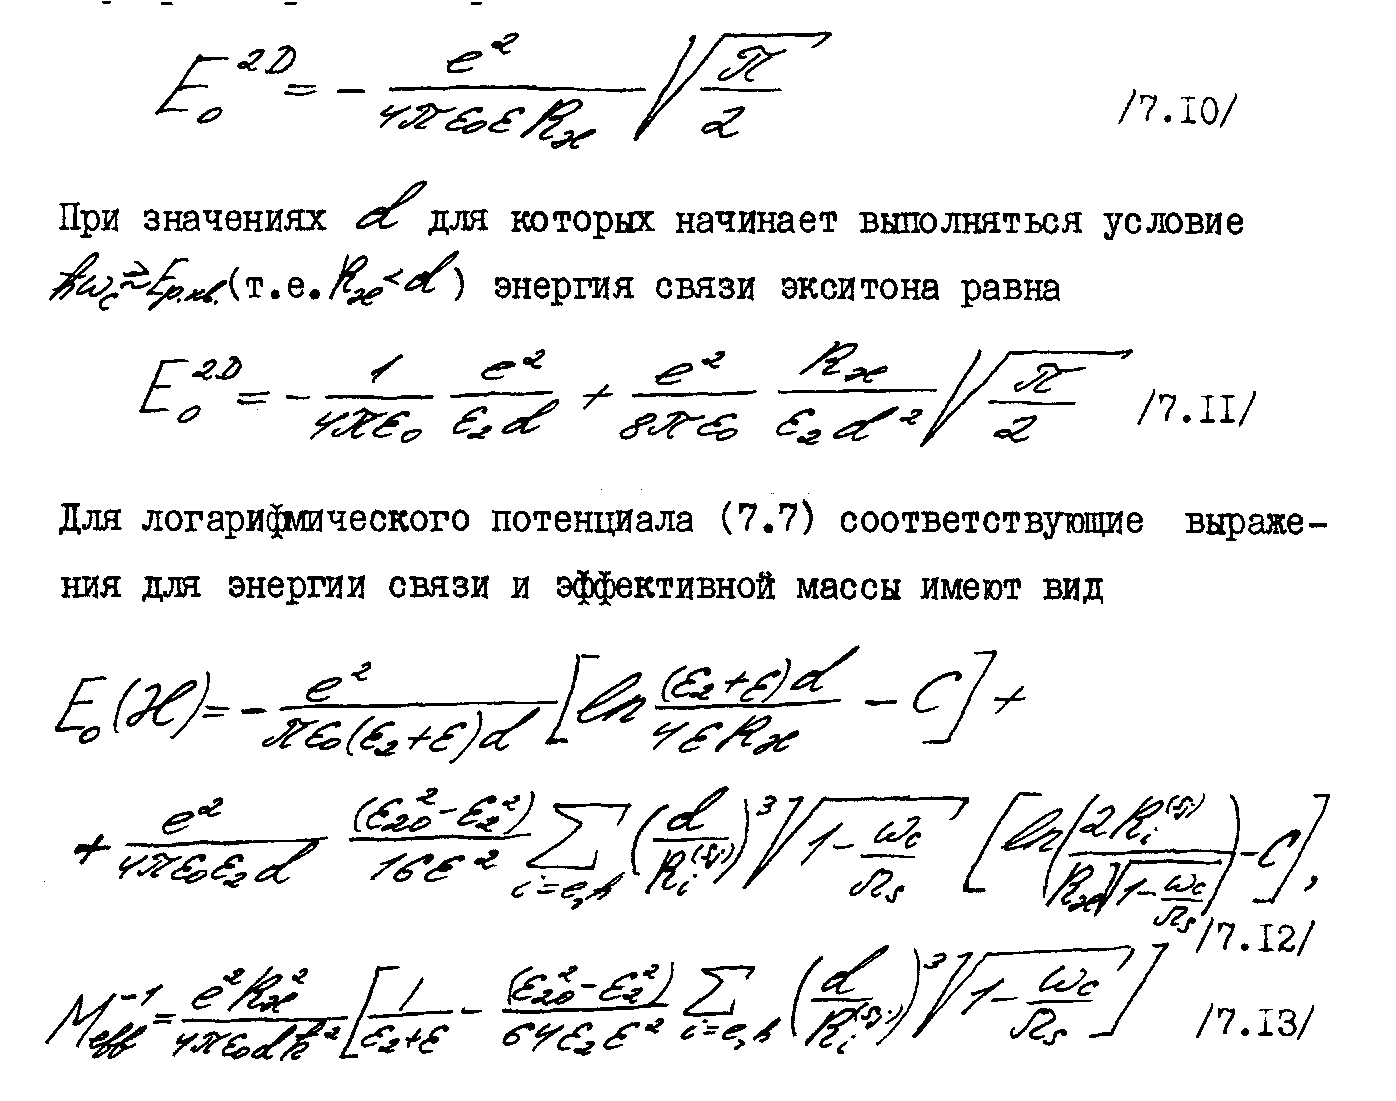 E₀^{2D} = - \frac{e²}{4πε₀ε R_ℋ} \sqrt{\frac{π}{2}} /7.10/
При значениях d для которых начинает выполняться условие
ħω_c ≳ E_{р.кв.} (т.е. R_ℋ < d) энергия связи экситона равна
E₀^{2D} = - \frac{1}{4πε₀} \frac{e²}{ε₂d} + \frac{e²}{8πε₀} \frac{R_ℋ}{ε₂d²} \sqrt{\frac{π}{2}} /7.11/
Для логарифмического потенциала (7.7) соответствующие выраже-
ния для энергии связи и эффективной массы имеют вид
E₀(ℋ) = - \frac{e²}{πε₀(ε₂+ε)d} [ln \frac{(ε₂+ε)d}{4εR_ℋ} - C] +
+ \frac{e²}{4πε₀ε₂d} \frac{(ε₂₀²-ε₂²)}{16ε²} \sum_{i=e,h} (\frac{d}{R_i^{(s)}})³ \sqrt{1-\frac{ω_c}{Ω_s}} [ln(\frac{2R_i^{(s)}}{R_ℋ\sqrt{1-\frac{ω_c}{Ω_s}}}) - C],
/7.12/
M_{eff}^{-1} = \frac{e²R_ℋ²}{4πε₀dħ²} [\frac{1}{ε₂+ε} - \frac{(ε₂₀²-ε₂²)}{64ε₂ε²} \sum_{i=e,h} (\frac{d}{R_i^{(s)}})³ \sqrt{1-\frac{ω_c}{Ω_s}}] /7.13/